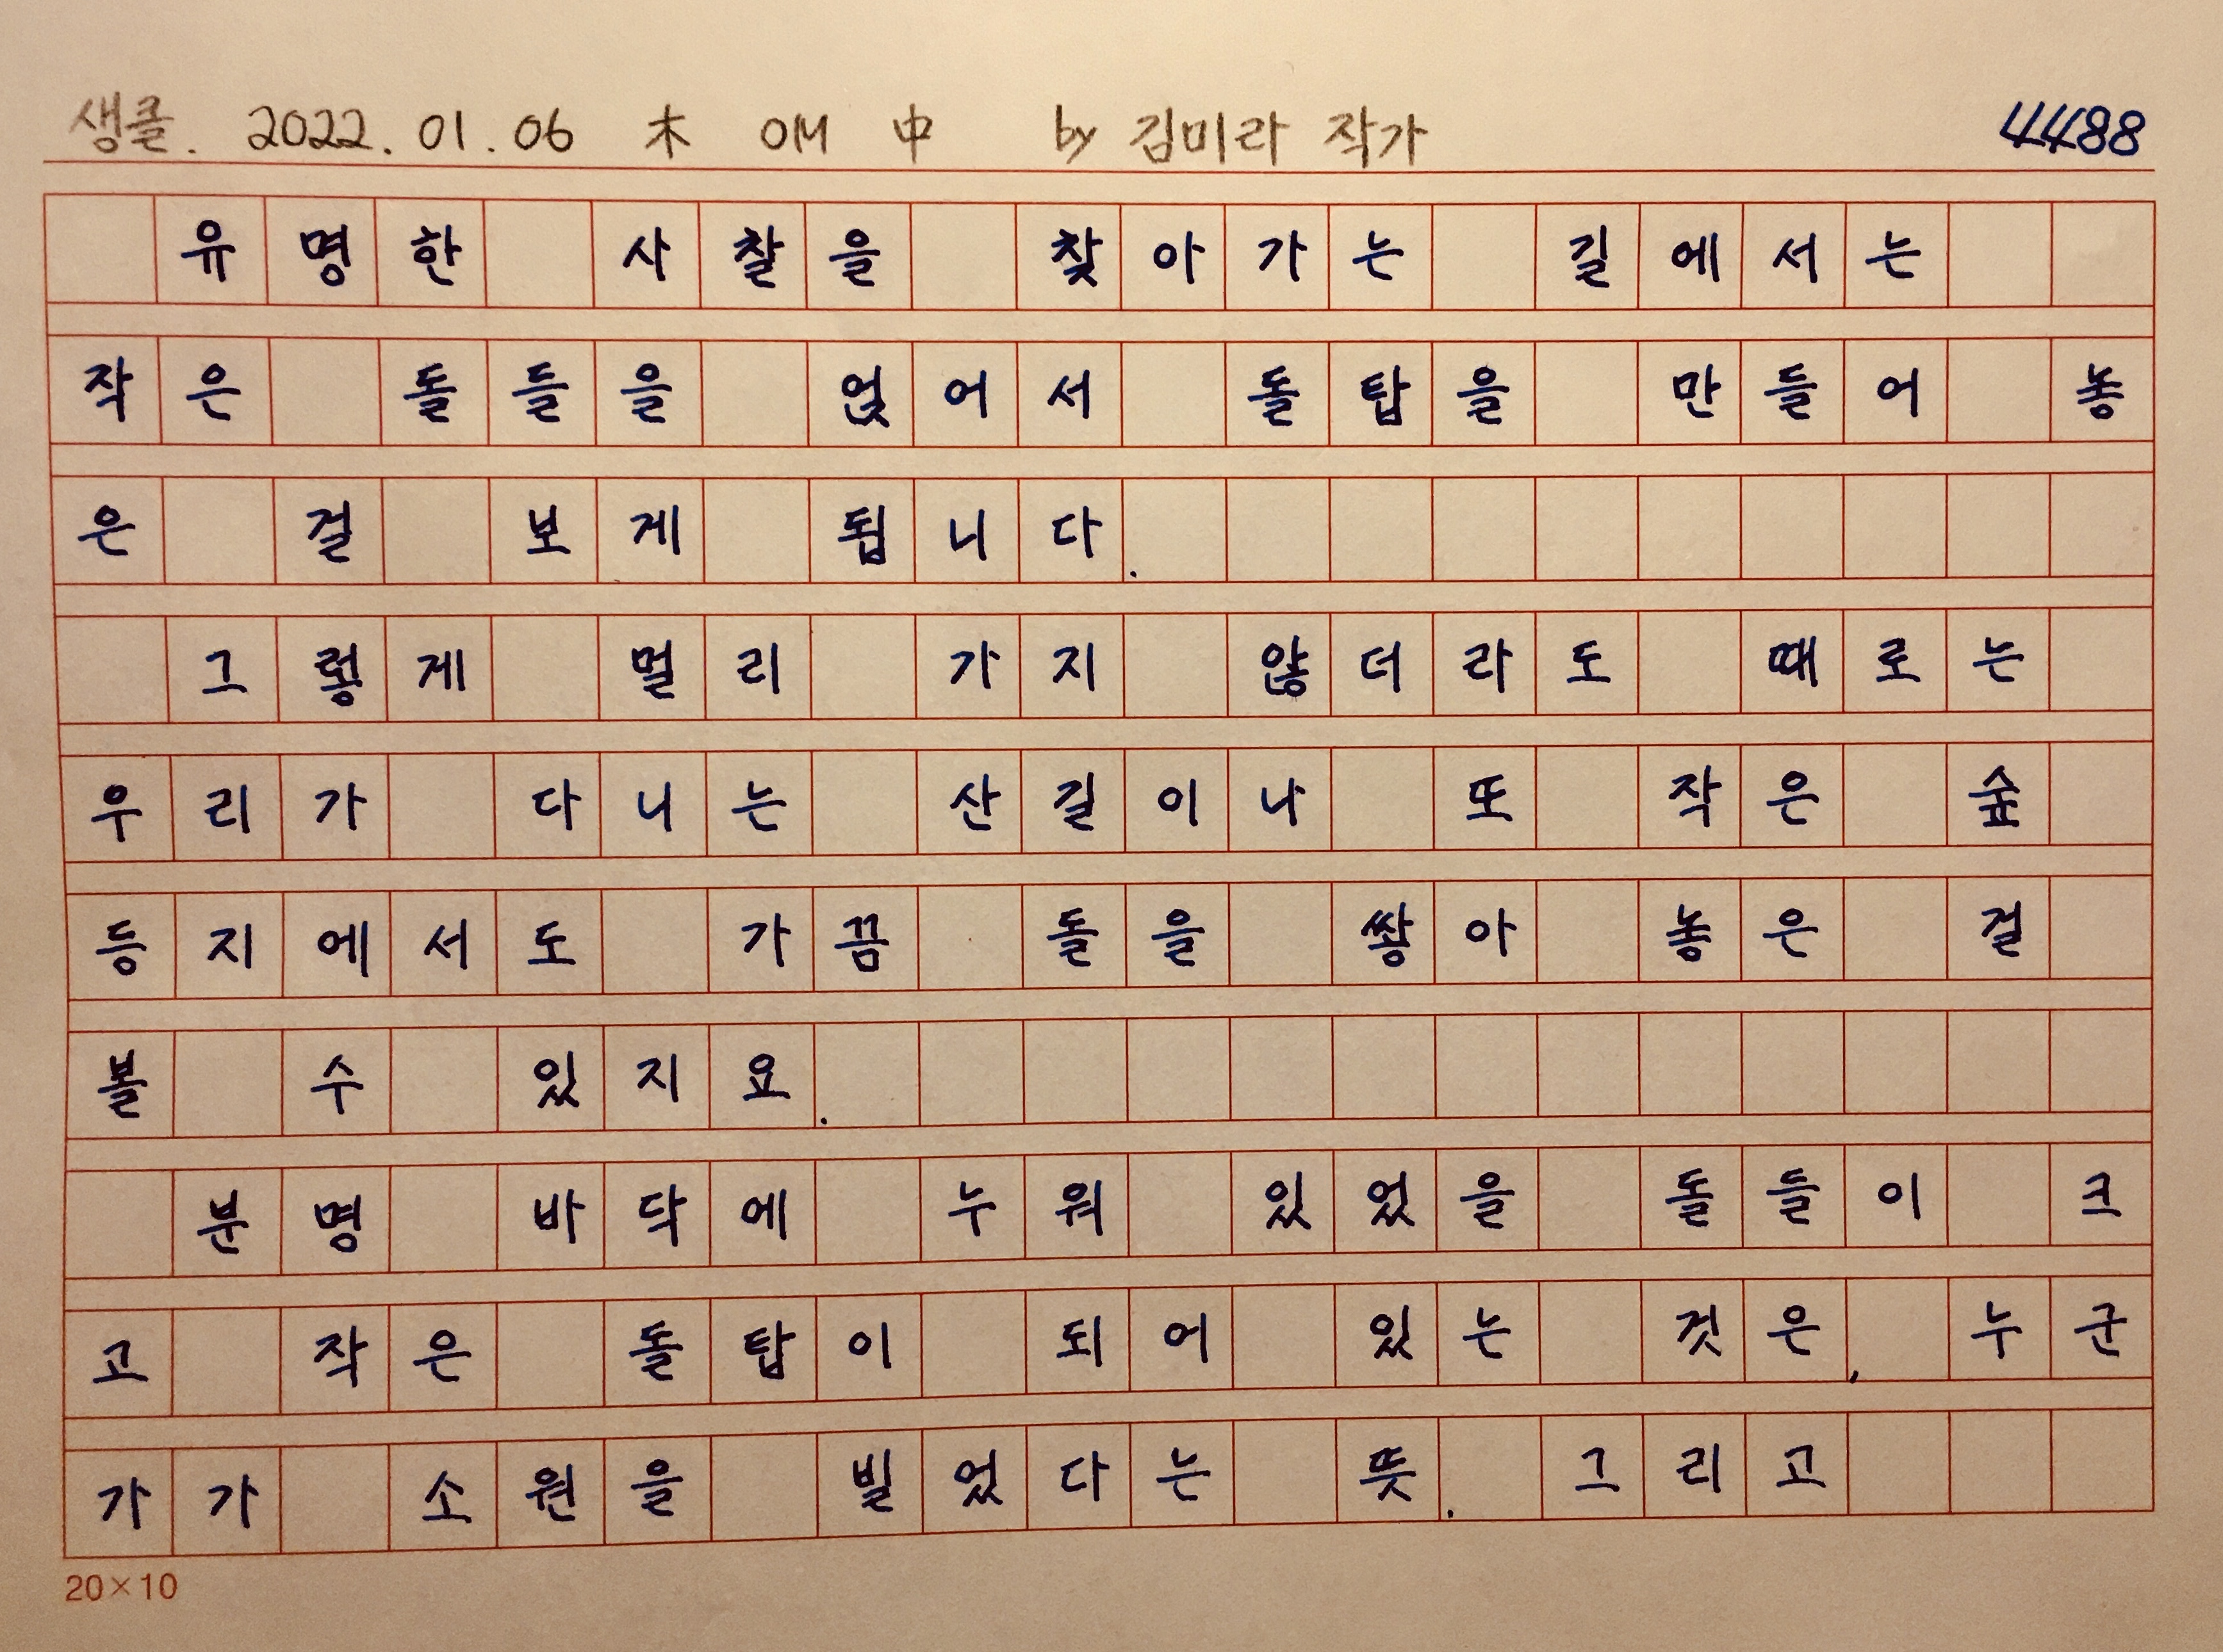 생클. 2022.01.06 木 OM 中 by 김미라 작가 4488
유명한 사찰을 찾아가는 길에서는
작은 돌들을 얹어서 돌탑을 만들어 놓
은 걸 보게 됩니다.
그렇게 멀리 가지 않더라도 때로는
우리가 다니는 산길이나 또 작은 숲
등지에서도 가끔 돌을 쌓아 놓은 걸
볼 수 있지요.
분명 바닥에 누워 있었을 돌들이 크
고 작은 돌탑이 되어 있는 것은, 누군
가가 소원을 빌었다는 뜻. 그리고
20×10